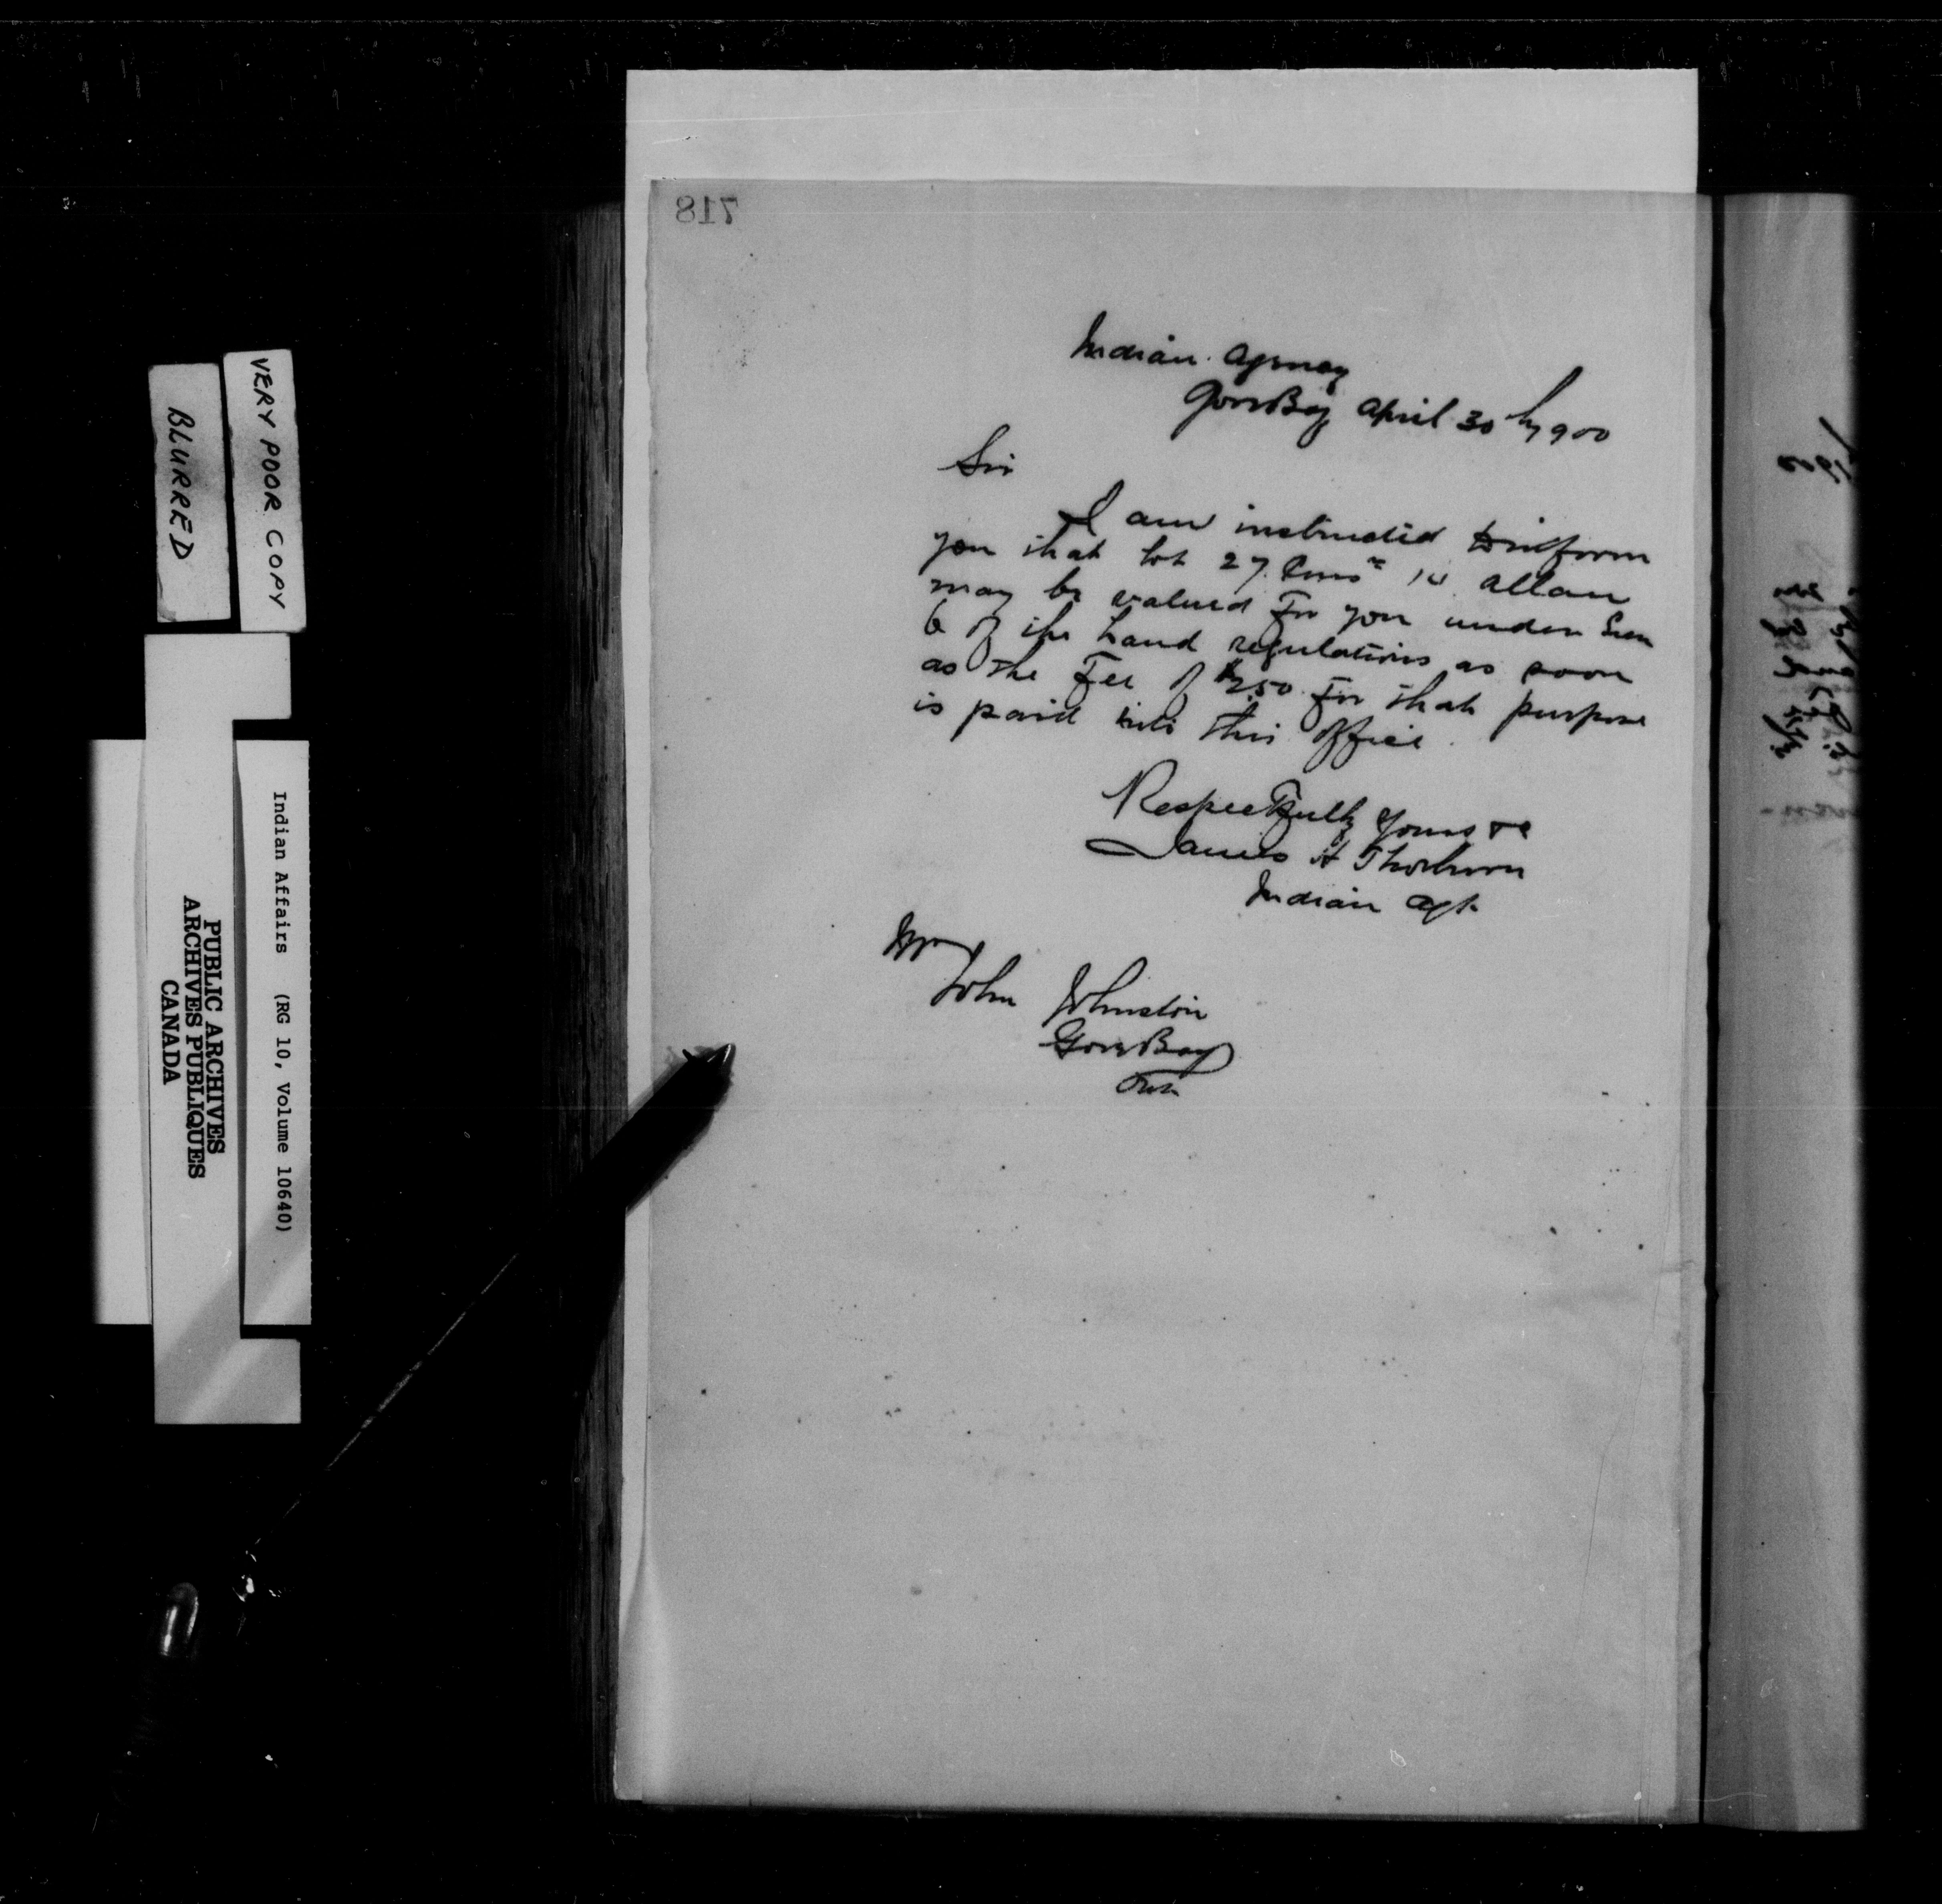 718
Indian Agency
Gore Bay April 30th 1900
Sir
I am instructed to inform
you that lot 27. Conn 10 Allan
may be valued for you under Sec
6 of the Land regulations as soon
as the Fee of $2.50 for that purpose
is paid into this office.
Respectfully Yours
James H Thorburn
Indian Agt.
Mr
John Johnston
Gore Bay
Ont.
VERY POOR COPY
BLURRED
Indian Affairs (RG 10, Volume 10640)
PUBLIC ARCHIVES
ARCHIVES PUBLIQUES
CANADA